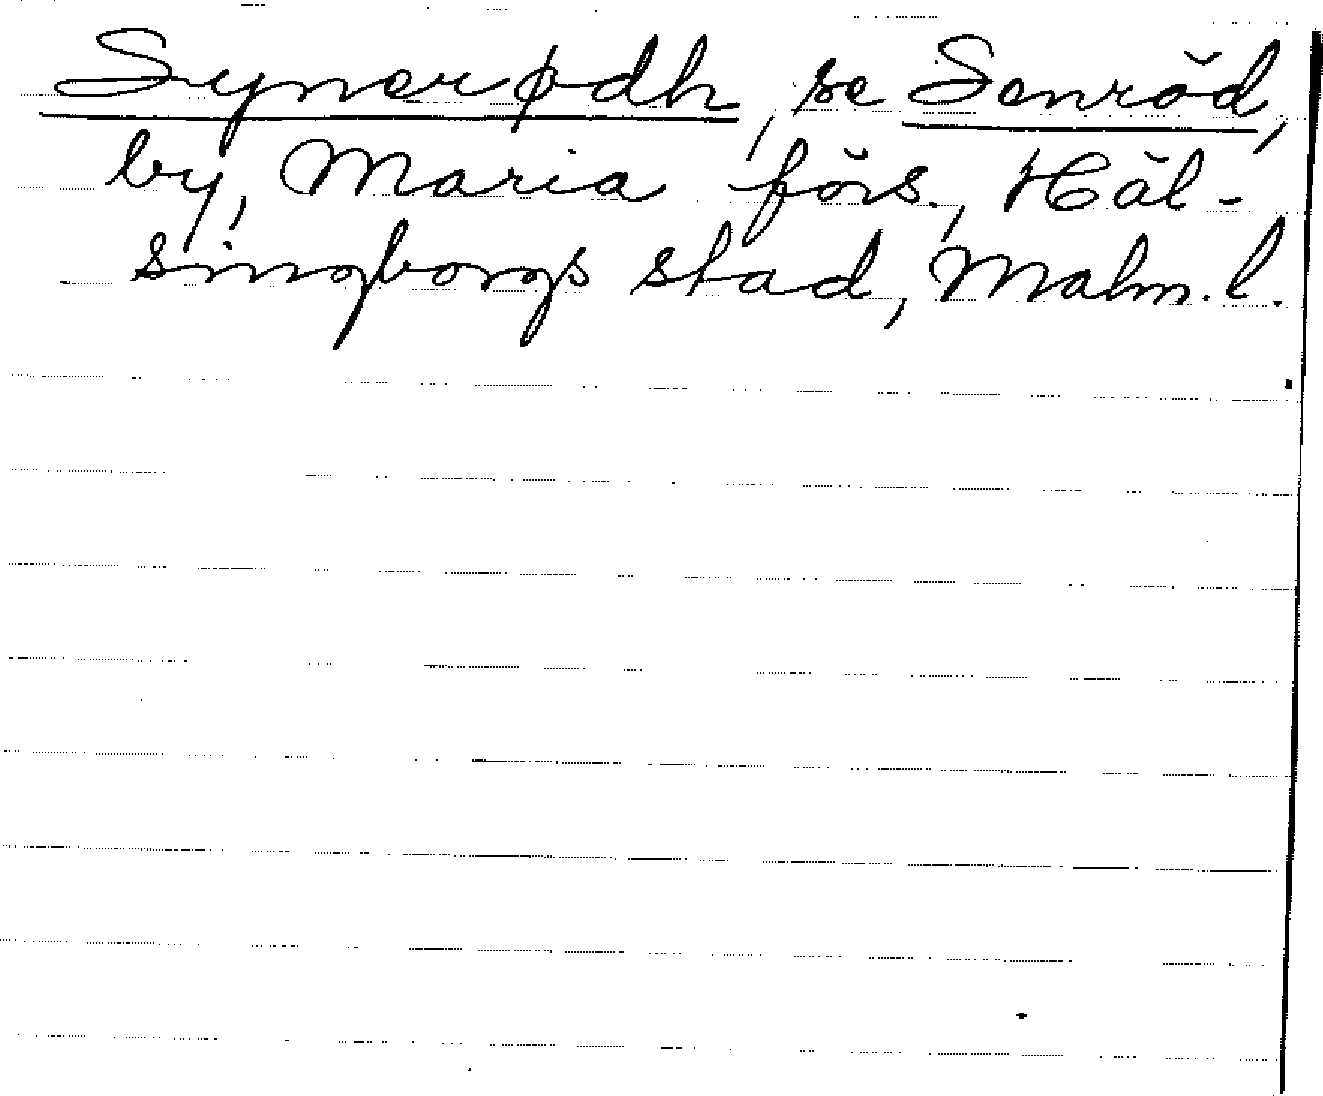 Synerødh, se Senröd,
by, Maria förs., Häl-
singborgs stad, Malm. l.